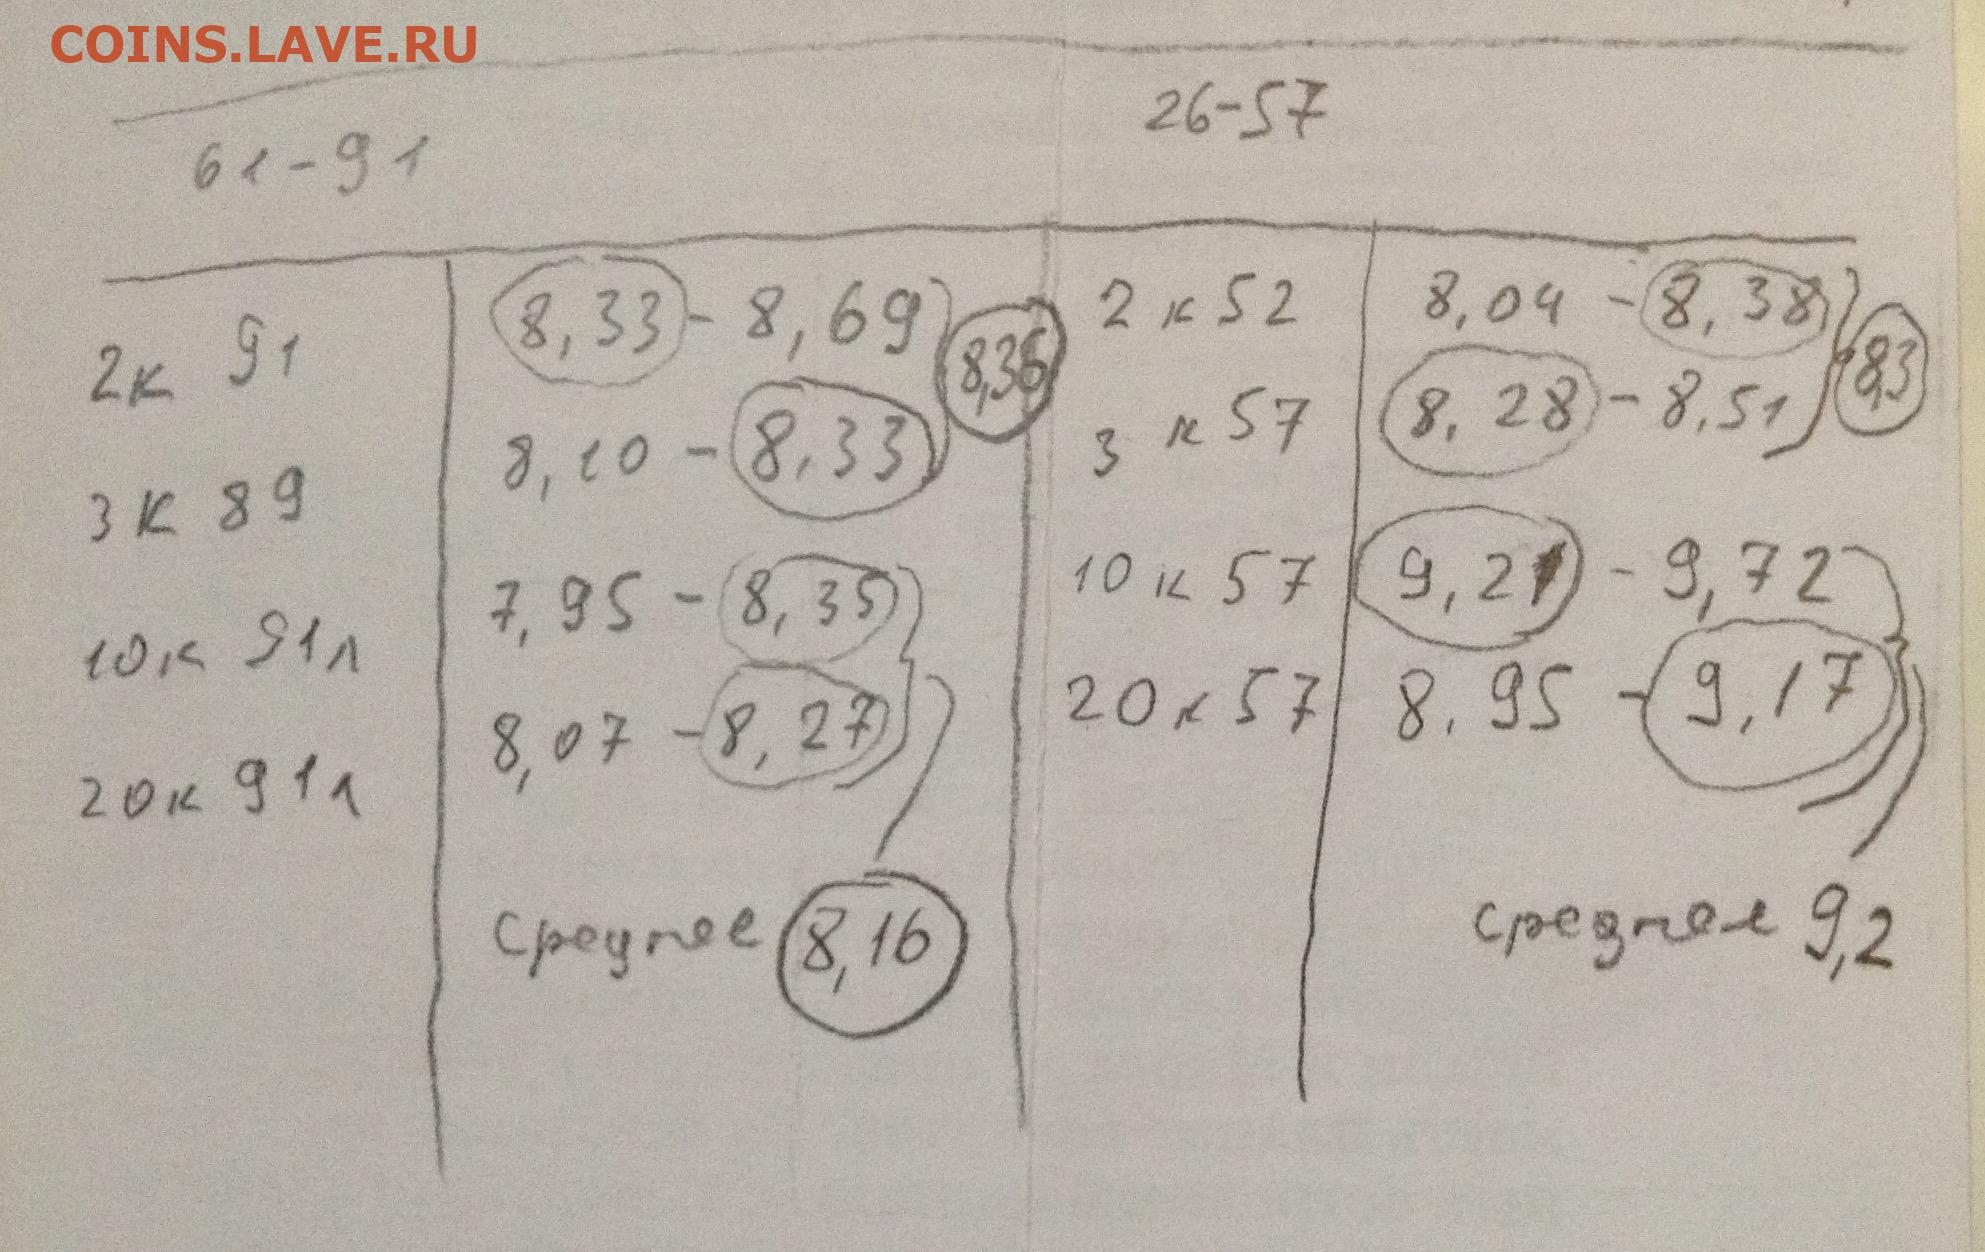 COINS.LAVE.RU
61-91 26-57
2к 91 8,33 - 8,69 8,36 2 к 52 8,04 - 8,38 8,3
3к 89 8,10 - 8,33 3 к 57 8,28 - 8,51
10к 91л 7,95 - 8,35 10 к 57 9,21 - 9,72
20к 91л 8,07 - 8,27 20 к 57 8,95 - 9,17
среднее 8,16 среднее 9,2